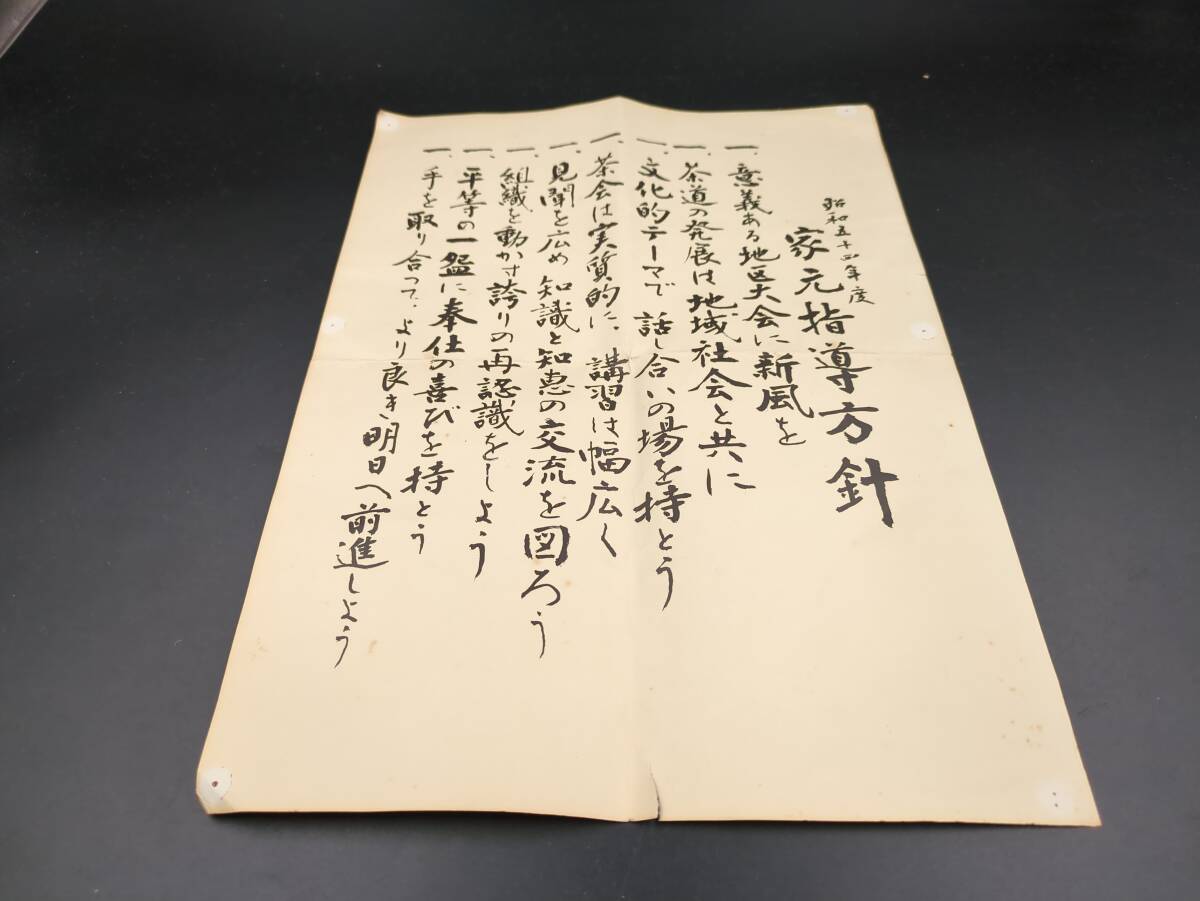 昭和五十四年度
家元指導方針
一、意義ある地区大会に新風を
一、茶道の発展は地域社会と共に
一、文化的テーマで話し合いの場を持とう
一、茶会は実質的に、講習は幅広く
一、見聞を広め知識と知恵の交流を図ろう
一、組織を動かす誇りの再認識をしよう
一、平等の一盌に奉仕の喜びを持とう
一、手を取り合って、より良き明日へ前進しよう